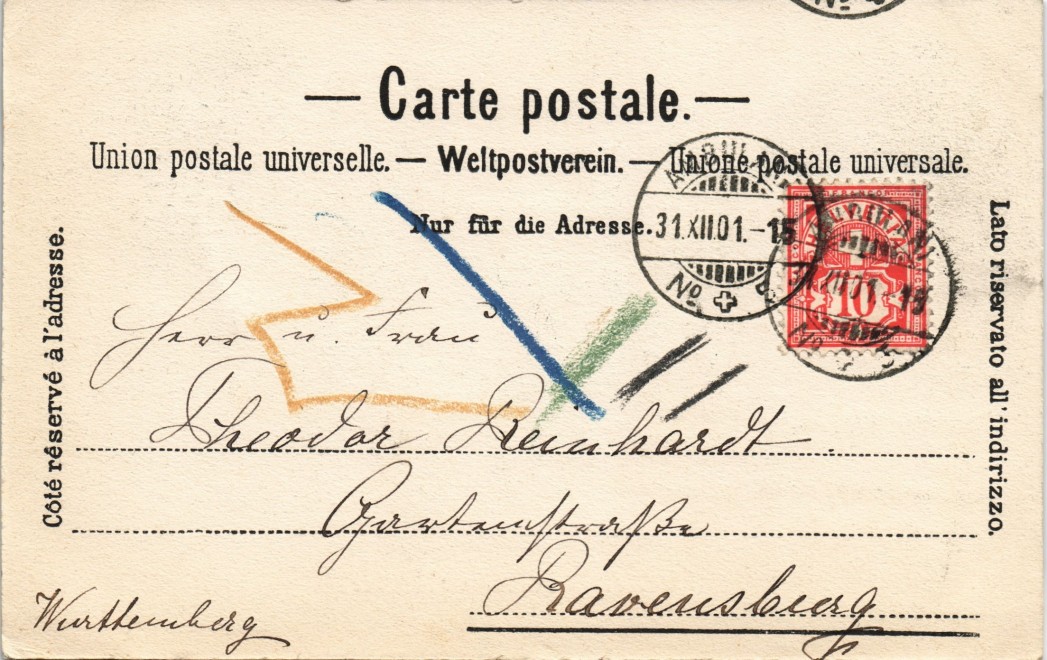 — Carte postale. —
Union postale universelle. — Weltpostverein. — Unione postale universale.
Nur für die Adresse.
Côté réservé à l'adresse.
Lato riservato all' indirizzo.
AMBULANT
31.XII.01.-15
No
10
Herr u. Frau
Theodor Reinhardt
Gartenstraße
Ravensburg
Württemberg